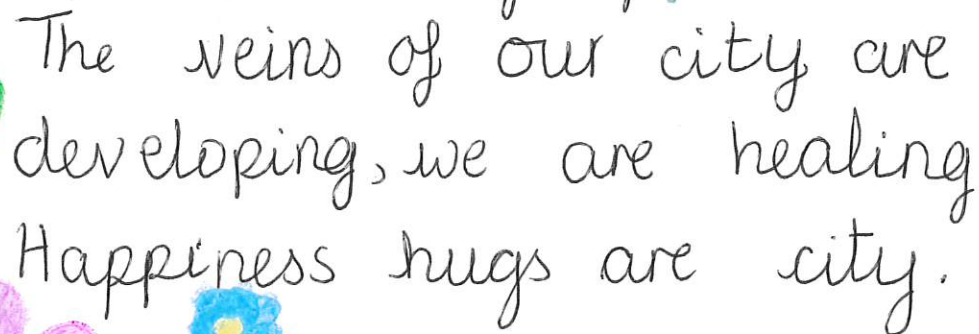 The veins of our city are
developing, we are healing
Happiness hugs are city.